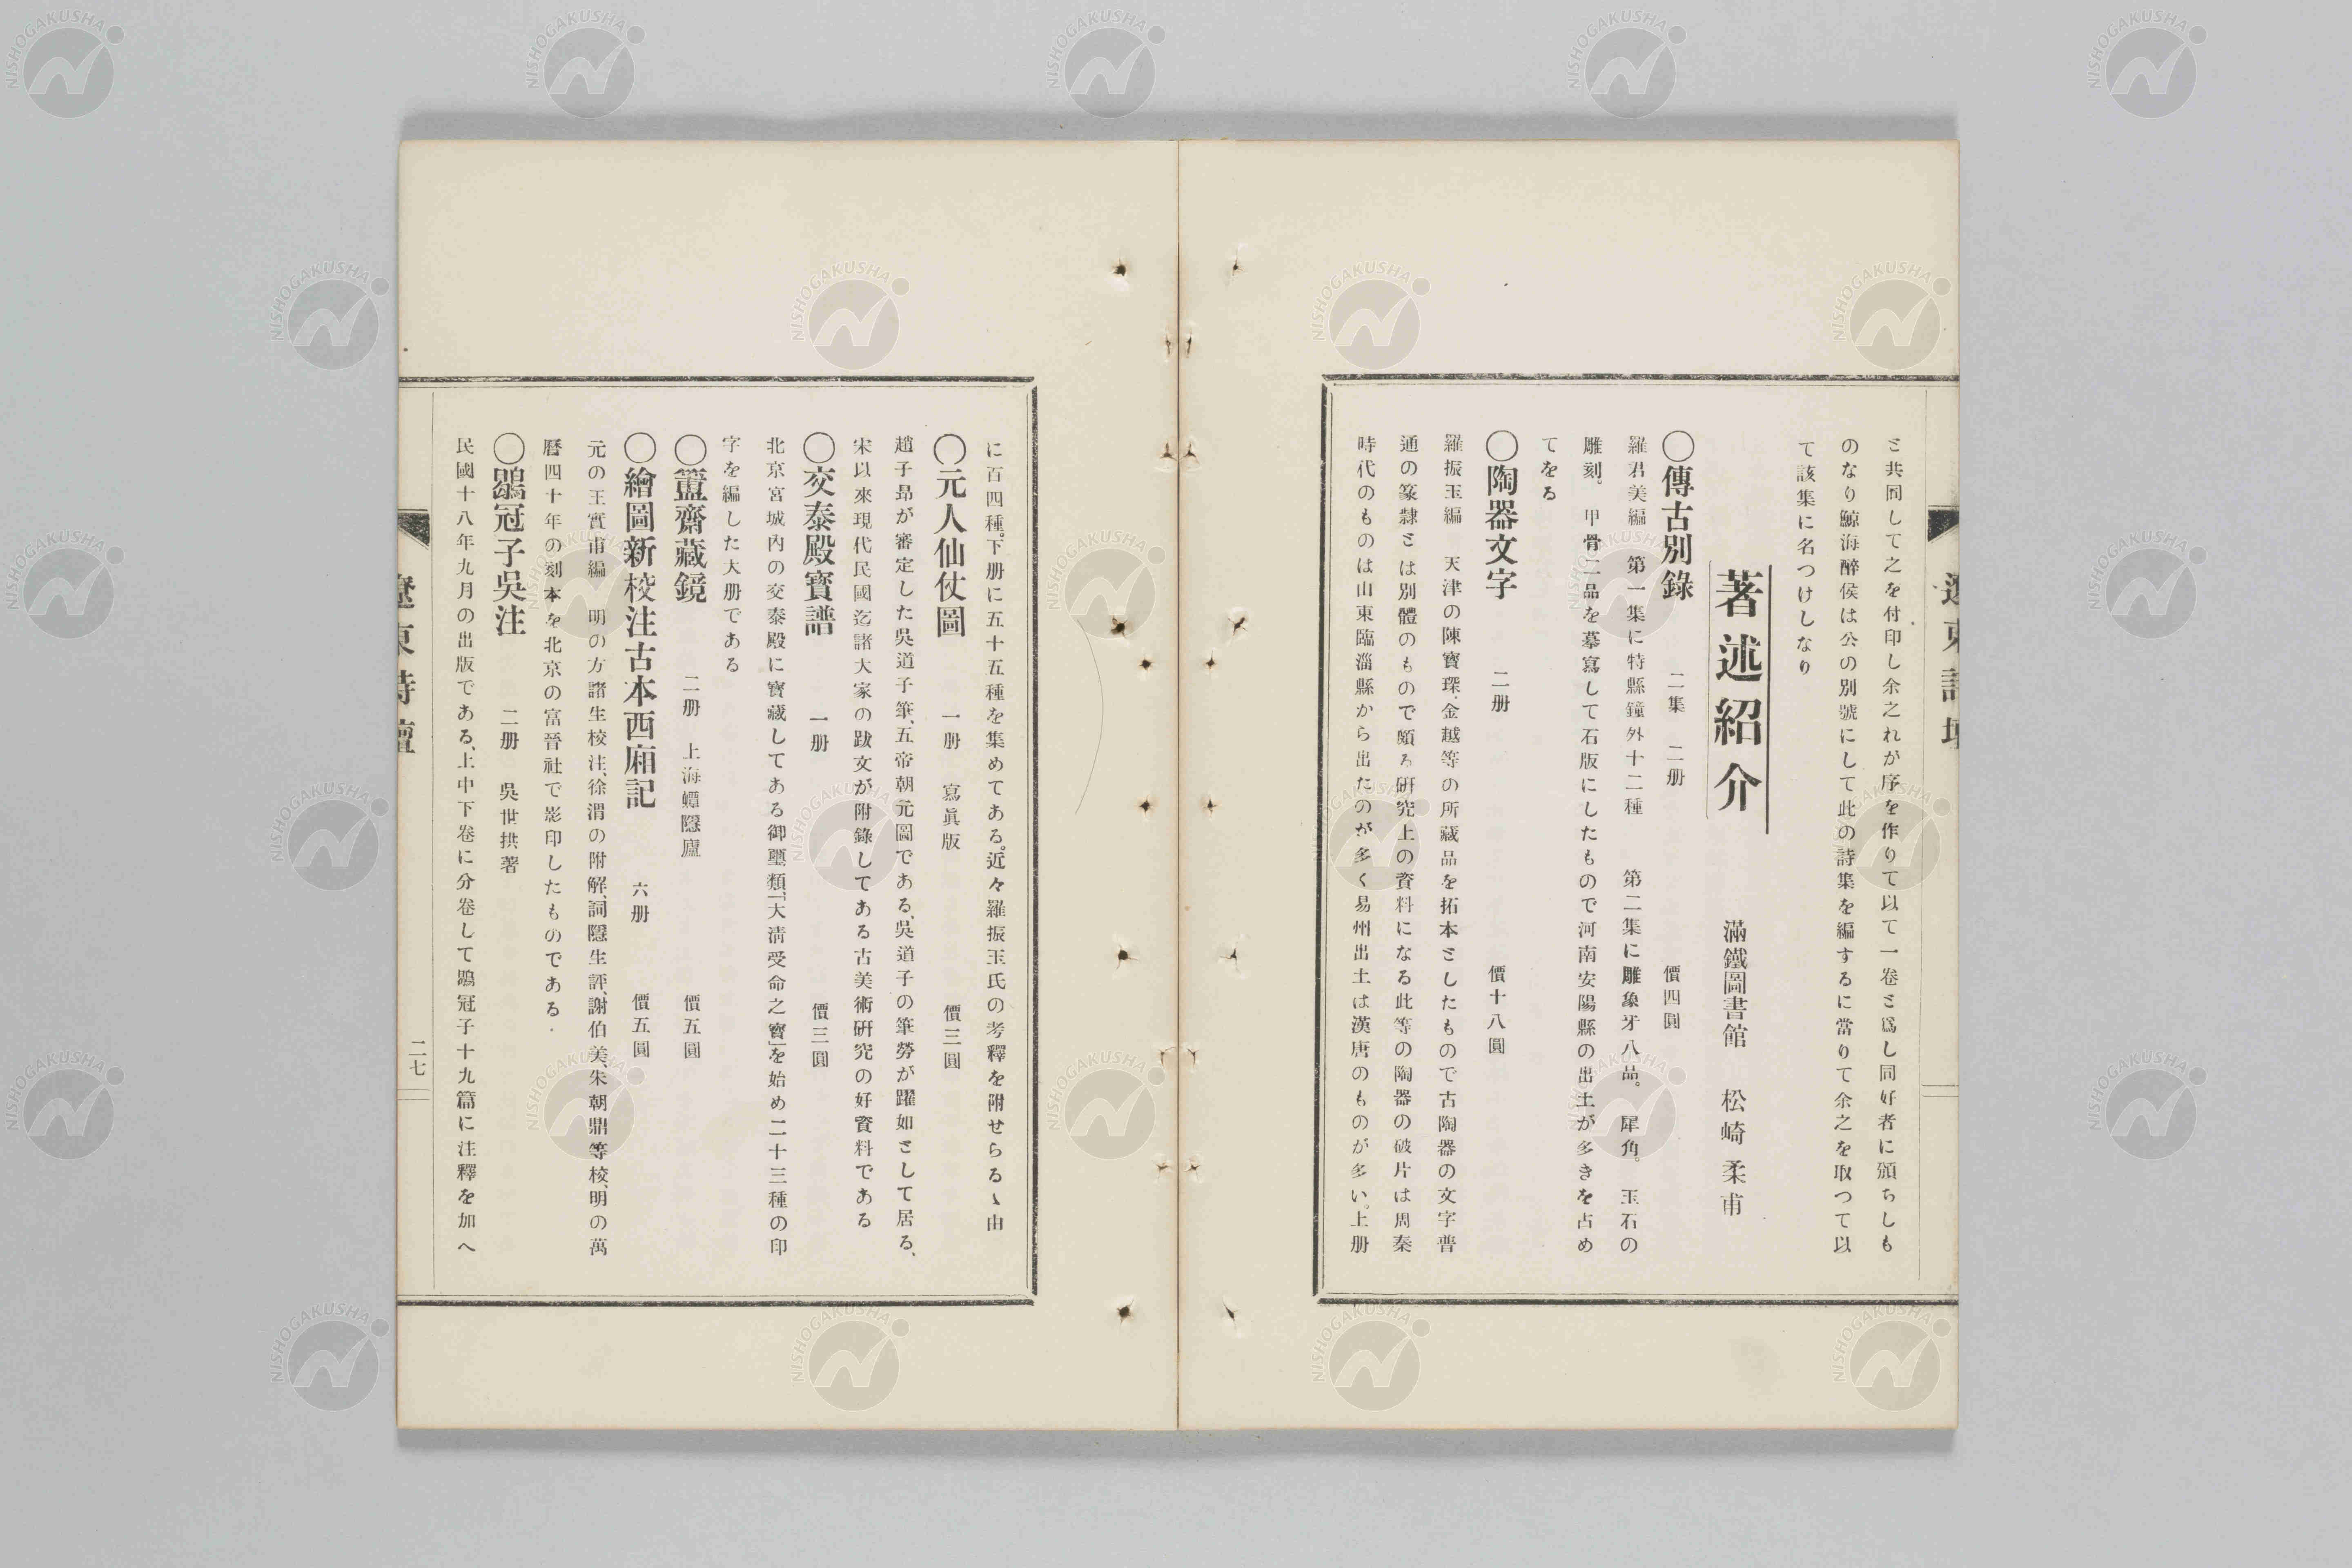 と共同して之を付印し余之れが序を作りて以て一卷と爲し同好者に頒ちしも
のなり鯨海醉侯は公の別號にして此の詩集を編するに當りて余之を取つて以
て該集に名つけしなり
著述紹介
滿鐵圖書館 松崎柔甫
〇傳古別錄 二集 二册 價四圓
羅君美編 第一集に特縣鐘外十二種 第二集に雕象牙八品。犀角。玉石の
雕刻。甲骨二品を摹寫して石版にしたもので河南安陽縣の出土が多きを占め
てをる
〇陶器文字 二册 價十八圓
羅振玉編 天津の陳寶琛、金越等の所藏品を拓本としたもので古陶器の文字普
通の篆隸とは別體のもので頗る研究上の資料になる此等の陶器の破片は周秦
時代のものは山東臨淄縣から出たのが多く易州出土は漢唐のものが多い。上册
に百四種。下册に五十五種を集めてある。近々羅振玉氏の考釋を附せらるゝ由
〇元人仙仗圖 一册 寫眞版 價三圓
趙子昂が審定した吳道子筆、五帝朝元圖である、吳道子の筆勞が躍如として居る、
宋以來現代民國迄諸大家の跋文が附錄してある古美術研究の好資料である
〇交泰殿寶譜 一册 價三圓
北京宮城內の交泰殿に寶藏してある御璽類、「大淸受命之寶」を始め二十三種の印
字を編した大册である
〇簠齋藏鏡 二册 上海蟫隱廬 價五圓
〇繪圖新校注古本西廂記 六册 價五圓
元の王實甫編 明の方諸生校注、徐渭の附解、詞隱生評、謝伯美、朱朝鼎等校、明の萬
曆四十年の刻本を北京の富晉社で影印したものである.
〇鶡冠子吳注 二册 吳世拱著
民國十八年九月の出版である、上中下卷に分卷して鶡冠子十九篇に注釋を加へ
遼東詩壇
二七